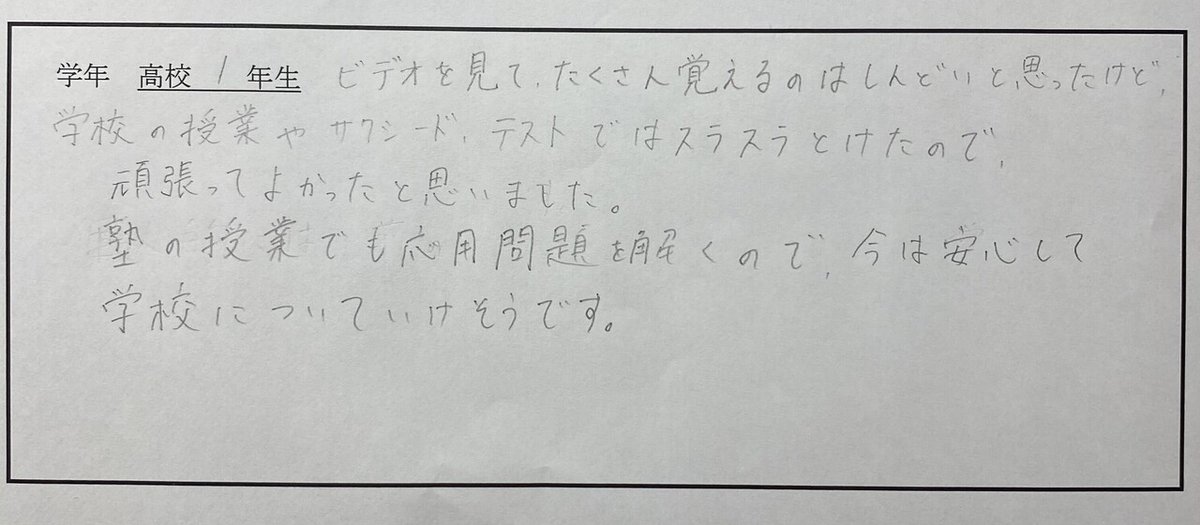 学年 高校 1 年生 ビデオを見て、たくさん覚えるのはしんどいと思ったけど、
学校の授業やサクシード、テストではスラスラとけたので、
頑張ってよかったと思いました。
塾の授業でも応用問題を解くので、今は安心して
学校についていけそうです。